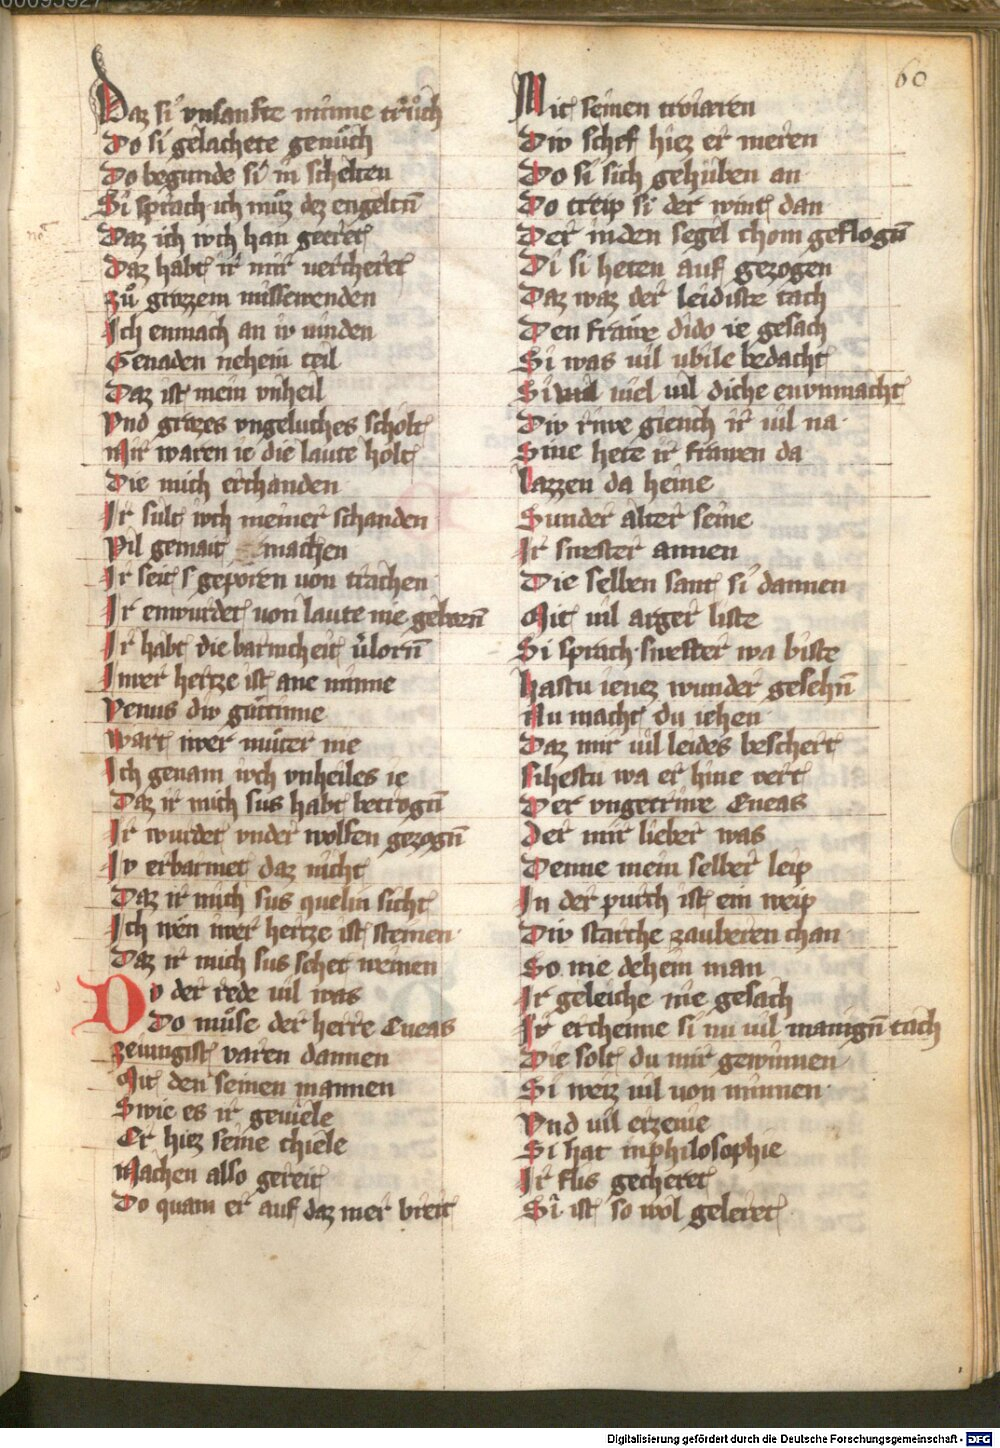 60
Daz si vnsanfte minne truͦch
Do si gelachete genuͦch
Do begunde si in schelten
Si sprach ich muͦz dez engeltn̄
Daz ich iwch han geeret
Daz habt ir mir vercheret
zuͦ grozzem missewenden
Ich enmach an iv vinden
Genaden nehein teil
Daz ist mein vnheil
Vnd grozes vngeluches scholt
Mir waren ie die laute holt
Die mich erchanden
Ir sult iwch meiner schanden
Vil gemait machen
Ir seit s geporen von trachen
Ir enwurdet von laute nie geborn̄
Ir habt die barmcheit v̓lorn̄
Iwer hertze ist ane minne
Venus div guͤttinne
Wart iwer muͤter nie
Ich genam iwch vnheiles ie
Daz ir mich sus habt betrogn̄
Ir wurdet vnder wolfen gezogn̄
Iv erbarmet daz nicht
Daz ir mich sus quelin sicht
Ich wen iwer hertze ist steinen
Daz ir mich sus sehet weinen
Dv der rede vil was
Do muͤse der herre Eneas
zeiungist varen dannen
Mit den seinen mannen
Swie es ir geviele
Er hiez seine chiele
Machen also gereit
Do quam er auf daz mer breit
Mit seinen troiaren
Div schef hiez er meren
Do si sich gehuben an
Do treip si der wint dan
Der in den segel chom geflogn̄
Di si heten auf gezogen
Daz waz der leidiste tach
Den frawe dido ie gesach
Si was vil vbile bedacht
Si viel vil diche en vnmacht
Div riwe giench ir vil na
Sine hete ir frawen da
lazzen da heine
Sunder alter seine
Ir swester annen
Die selben sant si dannen
Mit vil arger liste
Si sprach swester wa biste
hastu ienez wunder gesehn̄
Nu macht du iehen
Daz mir vil leides beschert
sihestu wa er hine vert
Der vngetriwe Eneas
Der mir lieber was
Denne mein selber leip
In der purch ist ein weip
Div starche zauberen chan
So nie dehein man
Ir geleiche nie gesach
Ir erchenne si nu vil manign̄ tach
Die solt du mir gewinnen
Si weiz vil von minnen
Vnd vil erzenie
Si hat in philosophie
Ir flis gecheret
Si ist so wol geleret
Digitalisierung gefördert durch die Deutsche Forschungsgemeinschaft - DFG